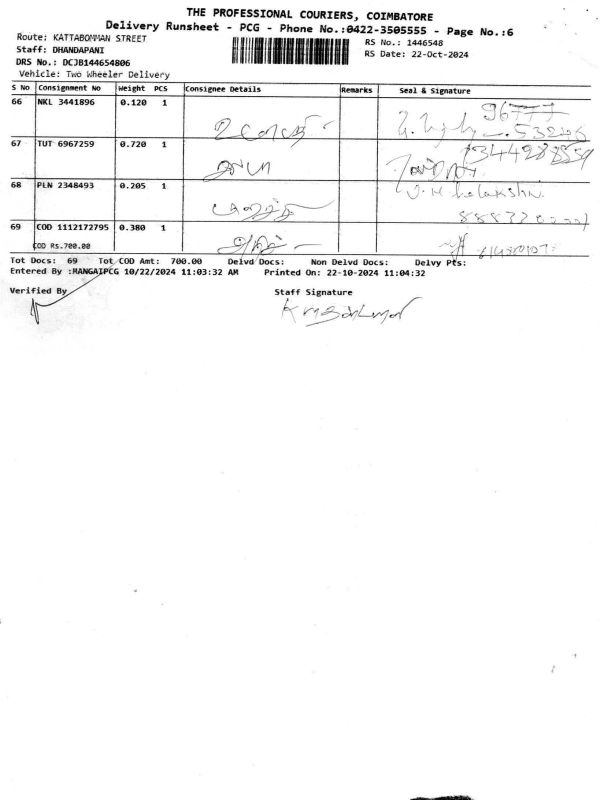 THE PROFESSIONAL COURIERS, COIMBATORE
Delivery Runsheet - PCG - Phone No.:0422-3505555 - Page No.:6
Route: KATTABOMMAN STREET
RS No.: 1446548
Staff: DHANDAPANI
RS Date: 22-Oct-2024
DRS No.: DCJB144654806
Vehicle: Two Wheeler Delivery
S No Consignment No Weight PCS Consignee Details Remarks Seal & Signature
66 NKL 3441896 0.120 1 96777
53246
67 TUT 6967259 0.720 1
68 PLN 2348493 0.205 1
69 COD 1112172795 0.380 1
COD Rs.700.00
Tot Docs: 69 Tot COD Amt: 700.00 Delvd Docs: Non Delvd Docs: Delvy Pts:
Entered By :MANGAIPCG 10/22/2024 11:03:32 AM Printed On: 22-10-2024 11:04:32
Verified By Staff Signature